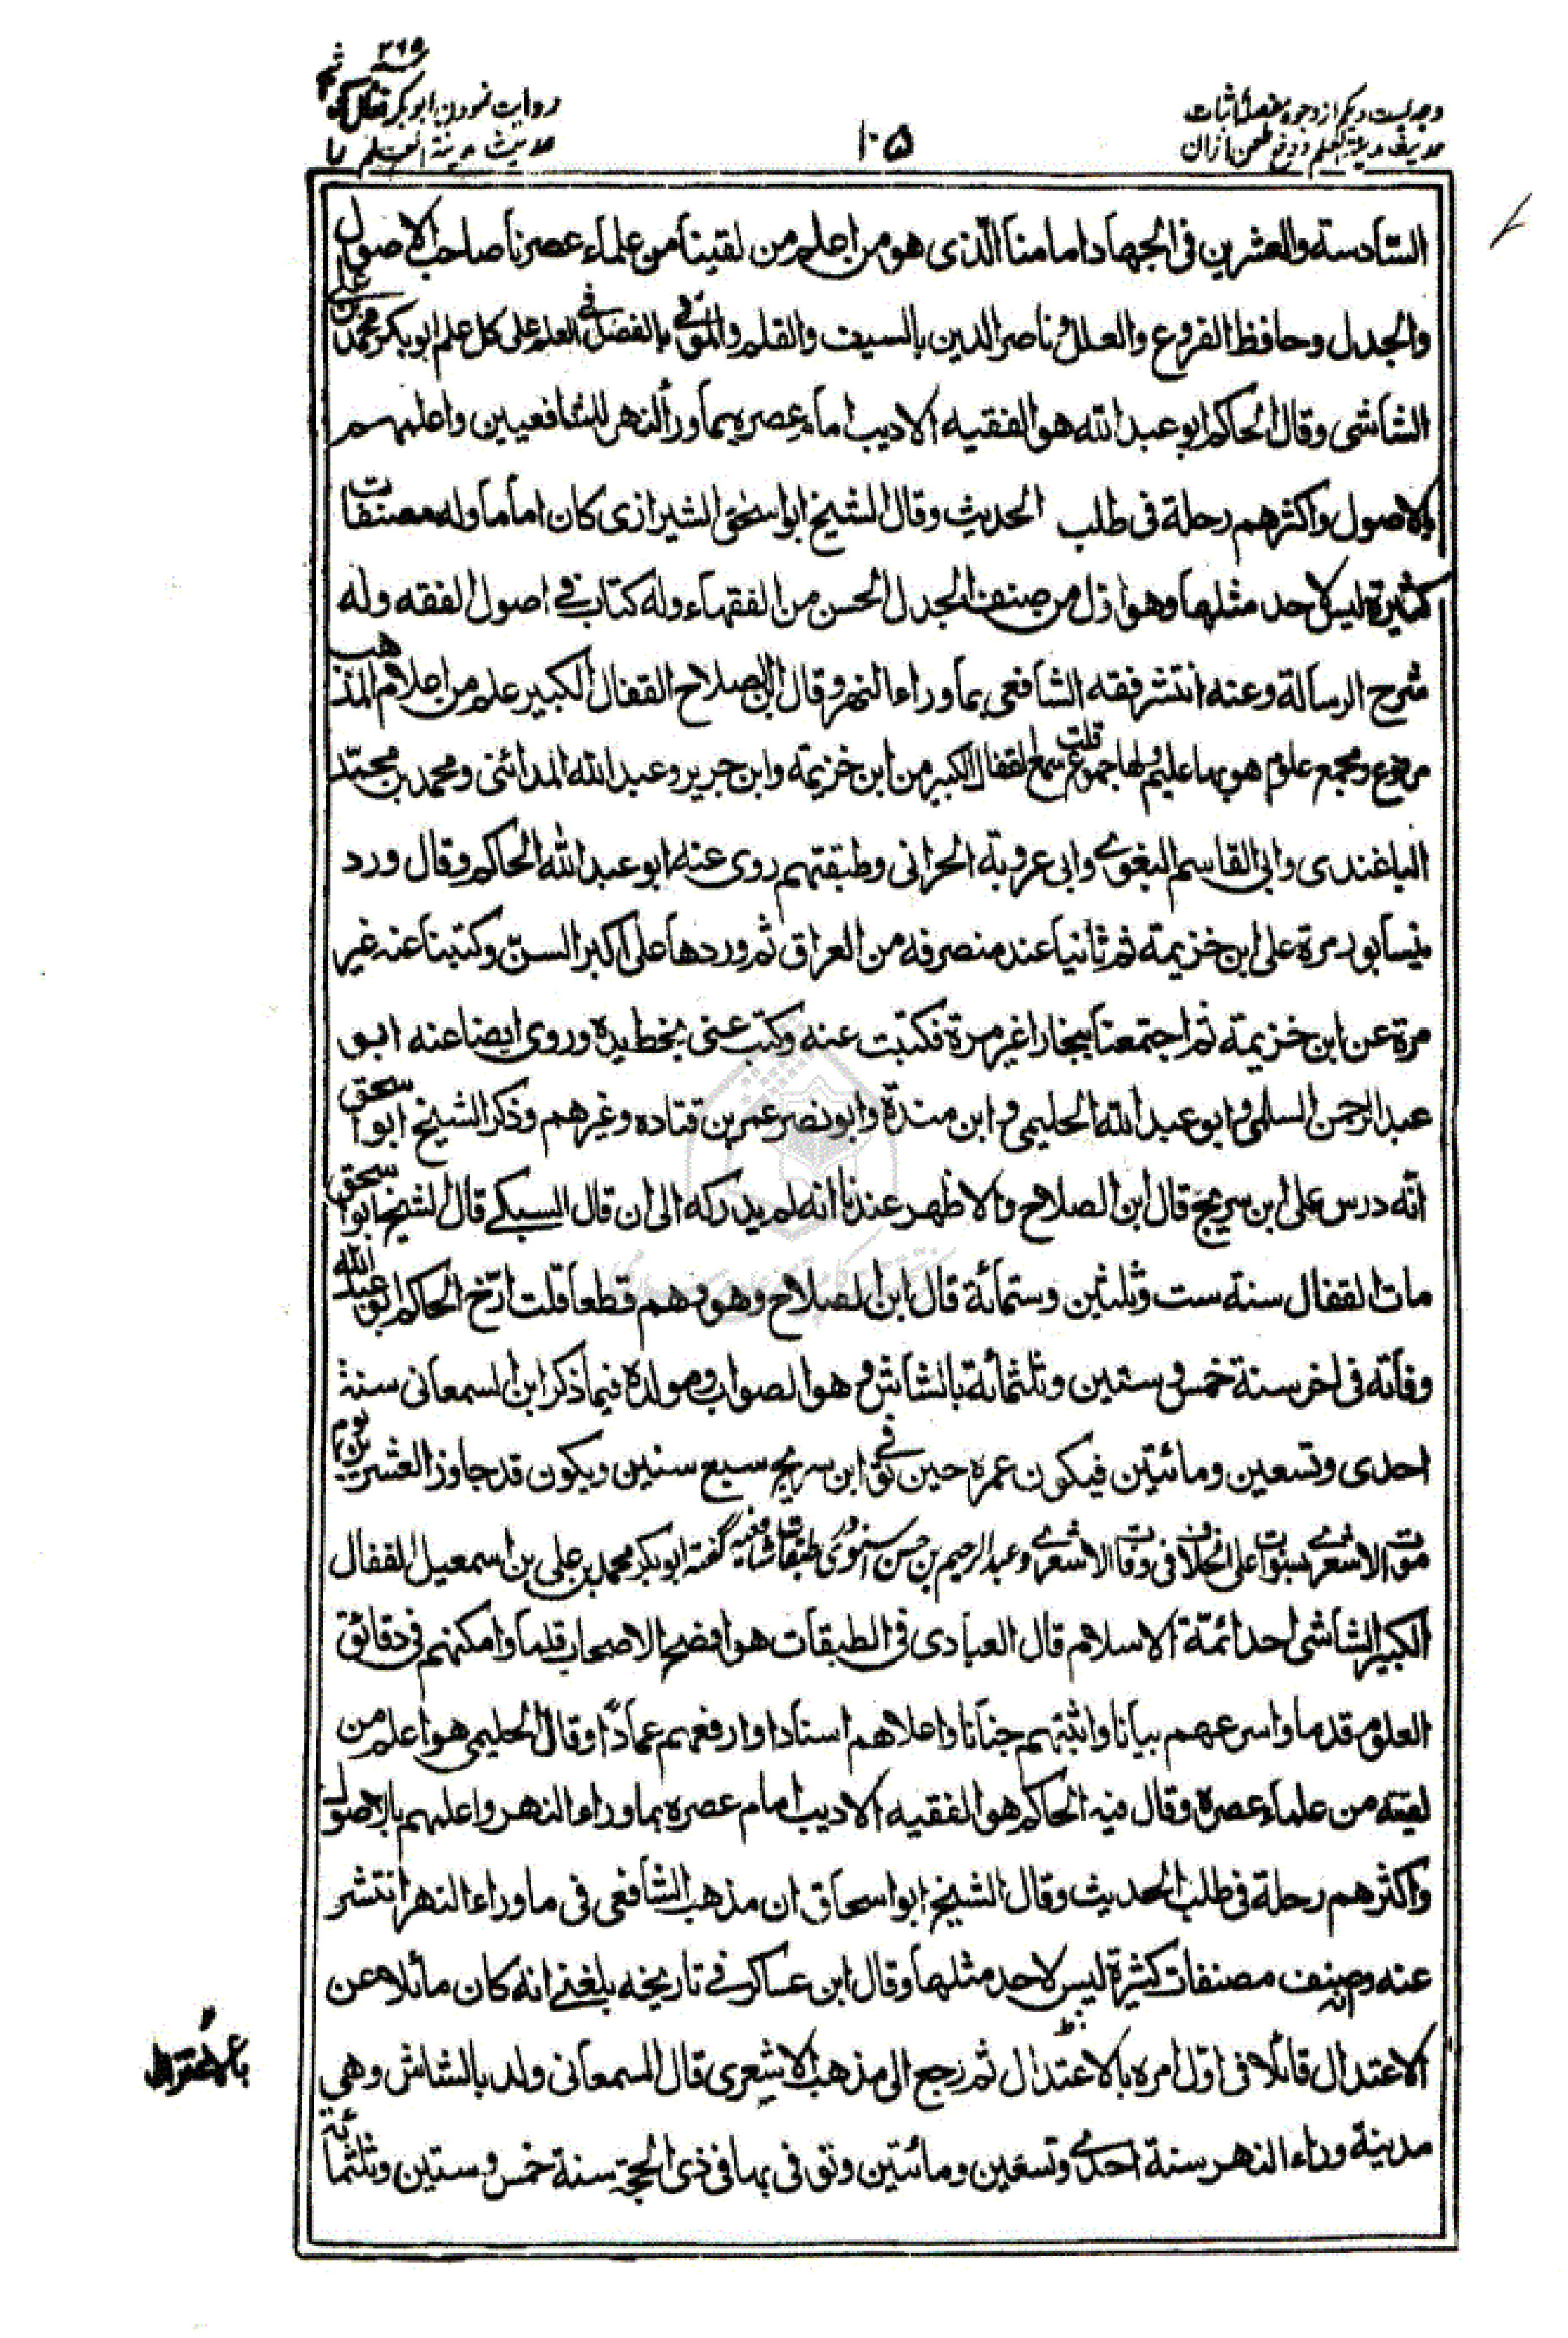 وجه بيست و يكم از وجوه مفصلۀ اثبات
حديث مدينة العلم و دفع طعن از ان
۱۰۵
۳۶۵
روايت نمودن ابو بكر قفال
حديث مدينة العلم را
السّادسة والعشرين فى الجهاد امامنا الّذى هو من اعلم من لقينا من علماء عصرنا صاحب الاصول
والجدل وحافظ الفروع والعلل وناصر الدين بالسيف والقلم والموفى بالفضل فى العلم على كل علم ابو بكر محمد بن على
الشاشى وقال الحاكم ابو عبد الله هو الفقيه الاديب امام عصره بما وراء النهر للشافعيين واعلمهم
بالاصول واكثرهم رحلة فى طلب الحديث وقال الشيخ ابو اسحق الشيرازى كان اماما وله مصنفات
كثيرة ليس لاحد مثلها وهو اوّل من صنف الجدل الحسن من الفقهاء وله كتاب فى اصول الفقه وله
شرح الرسالة وعنه انتشر فقه الشافعى بما وراء النهر وقال ابن الصلاح القفال الكبير علم من اعلام المذهب
مرفوع ومجمع علوم هو بها عليم ولها جموع قلت سمع القفال الكبير من ابن خزيمة وابن جرير وعبد الله المدائنى ومحمد بن محمّد
الباغندى وابى القاسم البغوى وابى عروبة الحرانى وطبقتهم روى عنه ابو عبد الله الحاكم وقال ورد
نيسابور مرة على ابن خزيمة ثم ثانيا عند منصرفه من العراق ثم وردها على اكبر السنّ وكتبنا عنه غير
مرة عن ابن خزيمة ثم اجتمعنا ببخارا غير مرة فكتبت عنه وكتب عنى بخط يده وروى ايضا عنه ابو
عبد الرحمن السلمى وابو عبد الله الحليمى وابن مندة وابو نصر عمر بن قتاده وغيرهم وذكر الشيخ ابو اسحق
انّه درس على ابن سريج قال ابن الصلاح والاظهر عندنا انه لم يدركه الى ان قال السبكى قال الشيخ ابو اسحق
مات القفال سنة ست وثلثين وستمائة قال ابن الصلاح وهو وهم قطعا قلت ارّخ الحاكم ابو عبد الله
وفاته فى اخر سنة خمس وستين وثلثمائة بالشاش وهو الصواب ومولده فيما ذكر ابن السمعانى سنة
احدى وتسعين ومائتين فيكون عمره حين توفى ابن سريج سبع سنين ويكون قد جاوز العشرين يوم
موت الاشعرى بسنوات على الخلاف فى وفات الاشعرى وعبد الرحيم بن حسن اسنوى در طبقات شافعيه گفته ابو بكر محمد بن على بن اسمعيل القفال
الكبير الشاشى احد ائمّة الاسلام قال العبادى فى الطبقات هو افصح الاصحاب قلما وامكنهم فى دقائق
العلوم قدما واسرعهم بيانا واثبتهم جنانا واعلاهم اسنادا وارفعهم عمادا وقال الحليمى هو اعلم من
لقيته من علماء عصره وقال فيه الحاكم هو الفقيه الاديب امام عصره بما وراء النهر واعلمهم بالاصول
واكثرهم رحلة فى طلب الحديث وقال الشيخ ابو اسحاق ان مذهب الشافعى فى ما وراء النهر انتشر
عنه وصنف مصنفات كثيرة ليس لاحد مثلها وقال ابن عساكر فى تاريخه بلغنى انه كان مائلا عن
الاعتدال قائلا فى اوّل امره بالاعتدال ثم رجع الى مذهب الاشعرى قال السمعانى ولد بالشاش وهى
مدينة وراء النهر سنة احدى وتسعين ومائتين وتوفى بها فى ذى الحجة سنة خمس وستين وثلثمائة